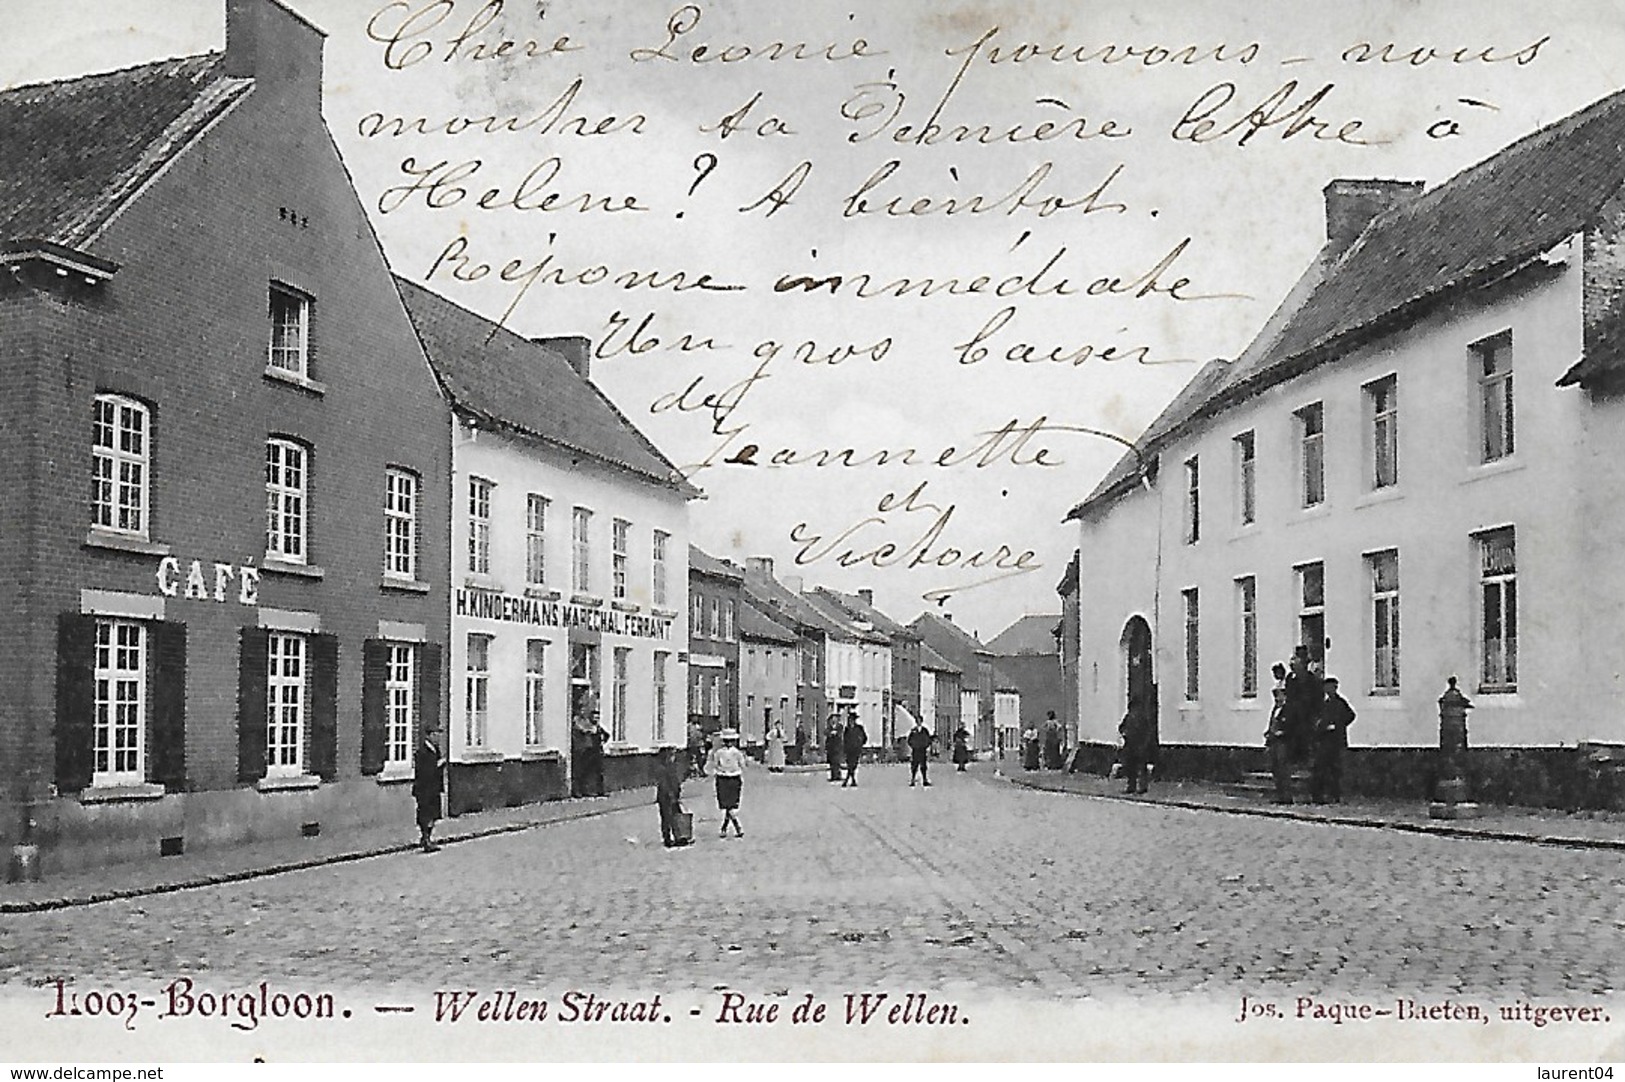 Chère Leonie, pouvons-nous
montrer ta dernière lettre à
Helene? A bientot.
Réponse immédiate
Un gros baiser
de
Jeannette
et
Victoire
CAFÉ
H.KINDERMANS MARÉCHAL.FERRANT
Looz-Borgloon. — Wellen Straat. - Rue de Wellen.
Jos. Paque-Baeten, uitgever.
www.delcampe.net
laurent04